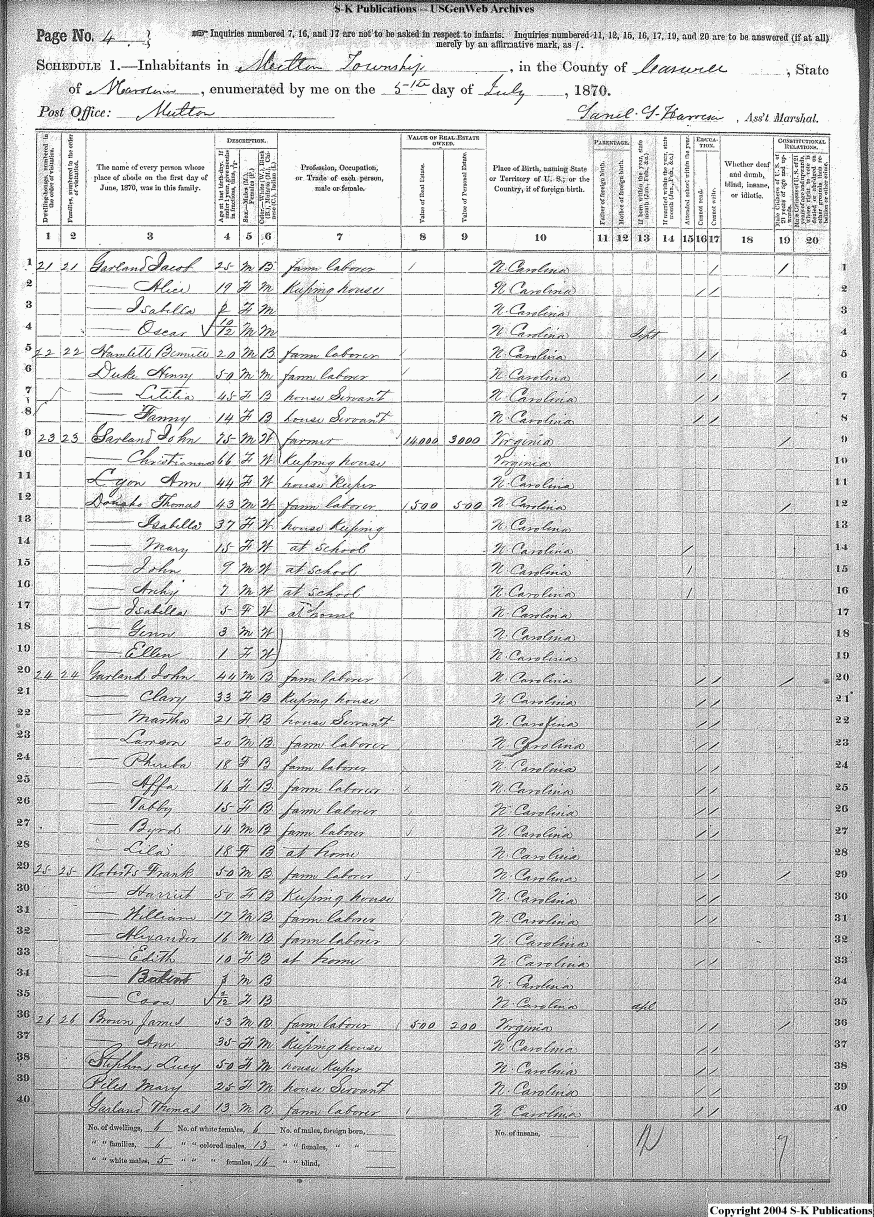 S-K Publications – USGenWeb Archives
Page No. 4
Inquiries numbered 7, 16, and 17 are not to be asked in respect to infants. Inquiries numbered 11, 12, 15, 16, 17, 19, and 20 are to be answered (if at all)
merely by an affirmative mark, as /.
SCHEDULE 1.—Inhabitants in Milton Township, in the County of Caswell, State
of N Carolina, enumerated by me on the 5th day of July, 1870.
Post Office: Milton , Ass't Marshal.
DESCRIPTION. VALUE OF REAL ESTATE OWNED. PARENTAGE. EDUCATION. CONSTITUTIONAL RELATIONS.
Dwelling-houses, numbered in the order of visitation. Families, numbered in the order of visitation. The name of every person whose place of abode on the first day of June, 1870, was in this family. Profession, Occupation, or Trade of each person, male or female. Value of Real Estate. Value of Personal Estate. Place of Birth, naming State or Territory of U. S.; or the Country, if of foreign birth. Father of foreign birth. Mother of foreign birth. Whether deaf and dumb, blind, insane, or idiotic.
1 2 3 4 5 6 7 8 9 10 11 12 13 14 15 16 17 18 19 20
1 21 21 Garland Jacob 25 M B farm laborer / N Carolina / / 1
2 — Alice 19 F M Keeping house N Carolina / / 2
3 — Isabella 2 F M N Carolina 3
4 — Oscar 10/12 M M N Carolina Sept 4
5 22 22 Hamlett Bennett 20 M B farm laborer / N Carolina / / 5
6 Duke Henry 50 M M farm laborer / N Carolina / / / 6
7 — Letitia 45 F B house Servant N Carolina / / 7
8 — Fanny 14 F B house Servant N Carolina / / 8
9 23 23 Garland John 75 M W farmer 14000 3000 Virginia / 9
10 — Christianna 66 F W Keeping house Virginia 10
11 Lyon Ann 44 F W house Keeper N Carolina 11
12 Donaho Thomas 43 M W farm laborer 1500 500 N Carolina / 12
13 — Isabella 37 F W house Keeping N Carolina 13
14 — Mary 15 F W at school N Carolina / 14
15 — John 9 M W at school N Carolina / 15
16 — Archy 7 M W at school N Carolina / 16
17 — Isabella 5 F W at home N Carolina 17
18 — Glenn 3 M W N Carolina 18
19 — Ellen 1 F W N Carolina 19
20 24 24 Garland John 44 M B farm laborer / N Carolina / / / 20
21 — Clary 33 F B Keeping house N Carolina / / 21
22 — Martha 21 F B house Servant N Carolina / / 22
23 — Lawson 20 M B farm laborer / N Carolina / / 23
24 — Pheriba 18 F B farm laborer / N Carolina / / 24
25 — Affa 16 F B farm laborer / N Carolina / / 25
26 — Tabby 15 F B farm laborer / N Carolina / / 26
27 — Byrd 14 M B farm laborer / N Carolina / / 27
28 — Lila 18 F B at home N Carolina 28
29 25 25 Roberts Frank 50 M B farm laborer / N Carolina / / / 29
30 — Harriet 50 F B Keeping house N Carolina / / 30
31 — William 17 M B farm laborer / N Carolina / / 31
32 — Alexander 16 M B farm laborer / N Carolina 32
33 — Edith 10 F B at home N Carolina / / 33
34 — M B N Carolina 34
35 — 2/12 F B N Carolina Apl 35
36 26 26 Brown James 53 M B farm laborer 500 200 Virginia / / / 36
37 — Ann 35 F M Keeping house N Carolina / / 37
38 Stephens Lucy 50 F M house Keeper N Carolina / / 38
39 Piles Mary 25 F M house Servant N Carolina / / 39
40 Garland Thomas 13 M B farm laborer / N Carolina / / 40
No. of dwellings, 6 No. of white females, 6 No. of males, foreign born, No. of insane,
" " families, 6 " " colored males, 13 " " females, " "
" " white males, 5 " " " females, 16 " " blind,
N 9
Copyright 2004 S-K Publications